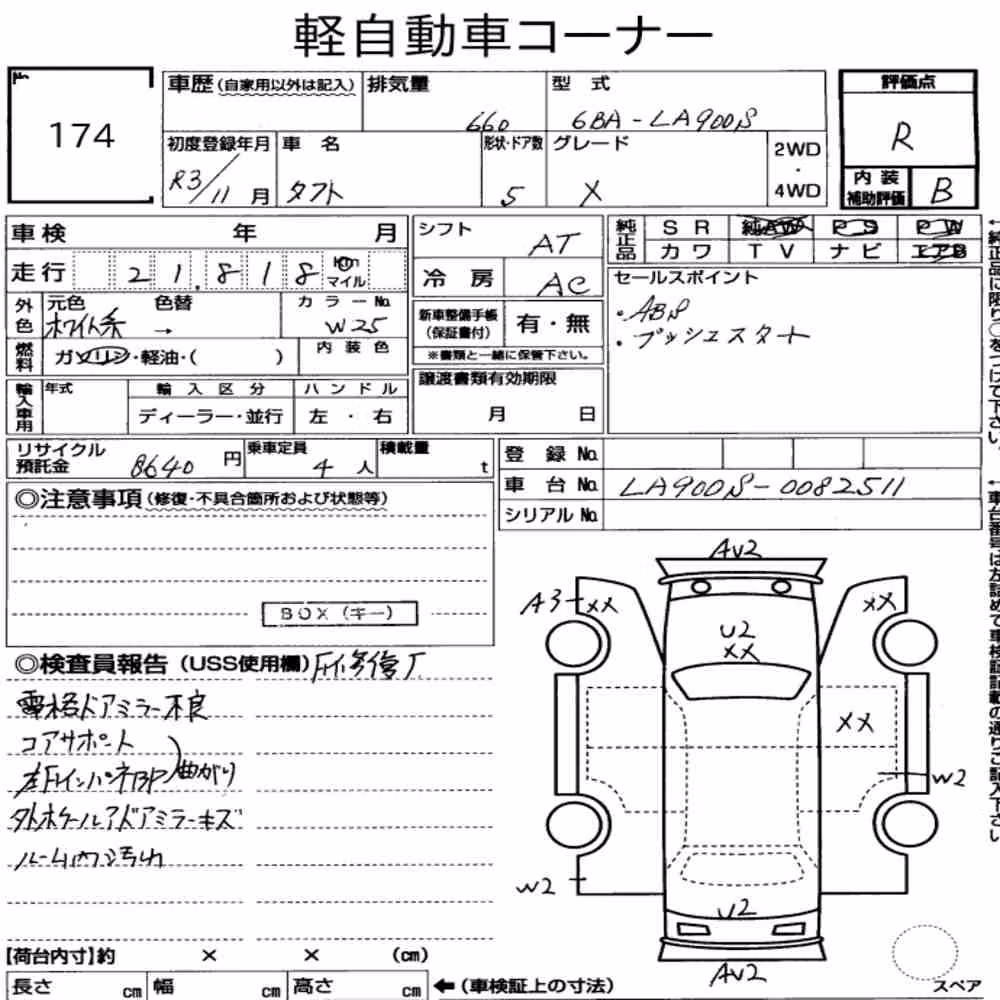 軽自動車コーナー
No.
174
車歴(自家用以外は記入)
排気量
660
型式
6BA-LA900S
評価点
R
初度登録年月
R3/11月
車名
タフト
形状・ドア数
5
グレード
X
2WD
・
4WD
内装
補助評価
B
車検 年 月
走行 21.818 km マイル
シフト
AT
冷房
AC
純正品
SR 純AW PS PW
カワ TV ナビ エアB
外色
元色 色替
ホワイト系 →
カラーNo.
W25
新車整備手帳
(保証書付)
有・無
※書類と一緒に保管下さい。
セールスポイント
・ABS
・プッシュスタート
燃料
ガソリン・軽油・( )
内装色
輸入車用
年式
輸入区分
ディーラー・並行
ハンドル
左・右
譲渡書類有効期限
月 日
リサイクル
預託金
8640円
乗車定員
4人
積載量
t
登録No.
車台No.
LA900S-0082511
シリアルNo.
◎注意事項(修復・不具合箇所および状態等)
BOX(キー)
◎検査員報告(USS使用欄)
電格ドアミラー不良
コアサポート
曲がり
ルーム内汚れ
AV2
A3
XX
XX
U2
XX
XX
W2
W2
U2
AV2
【荷台内寸】約 × × (cm)
長さ cm 幅 cm 高さ cm
←(車検証上の寸法)
スペア
←純正品に限り○をつけて下さい。
←車台番号は左詰めで車検証記載の通りご記入下さい